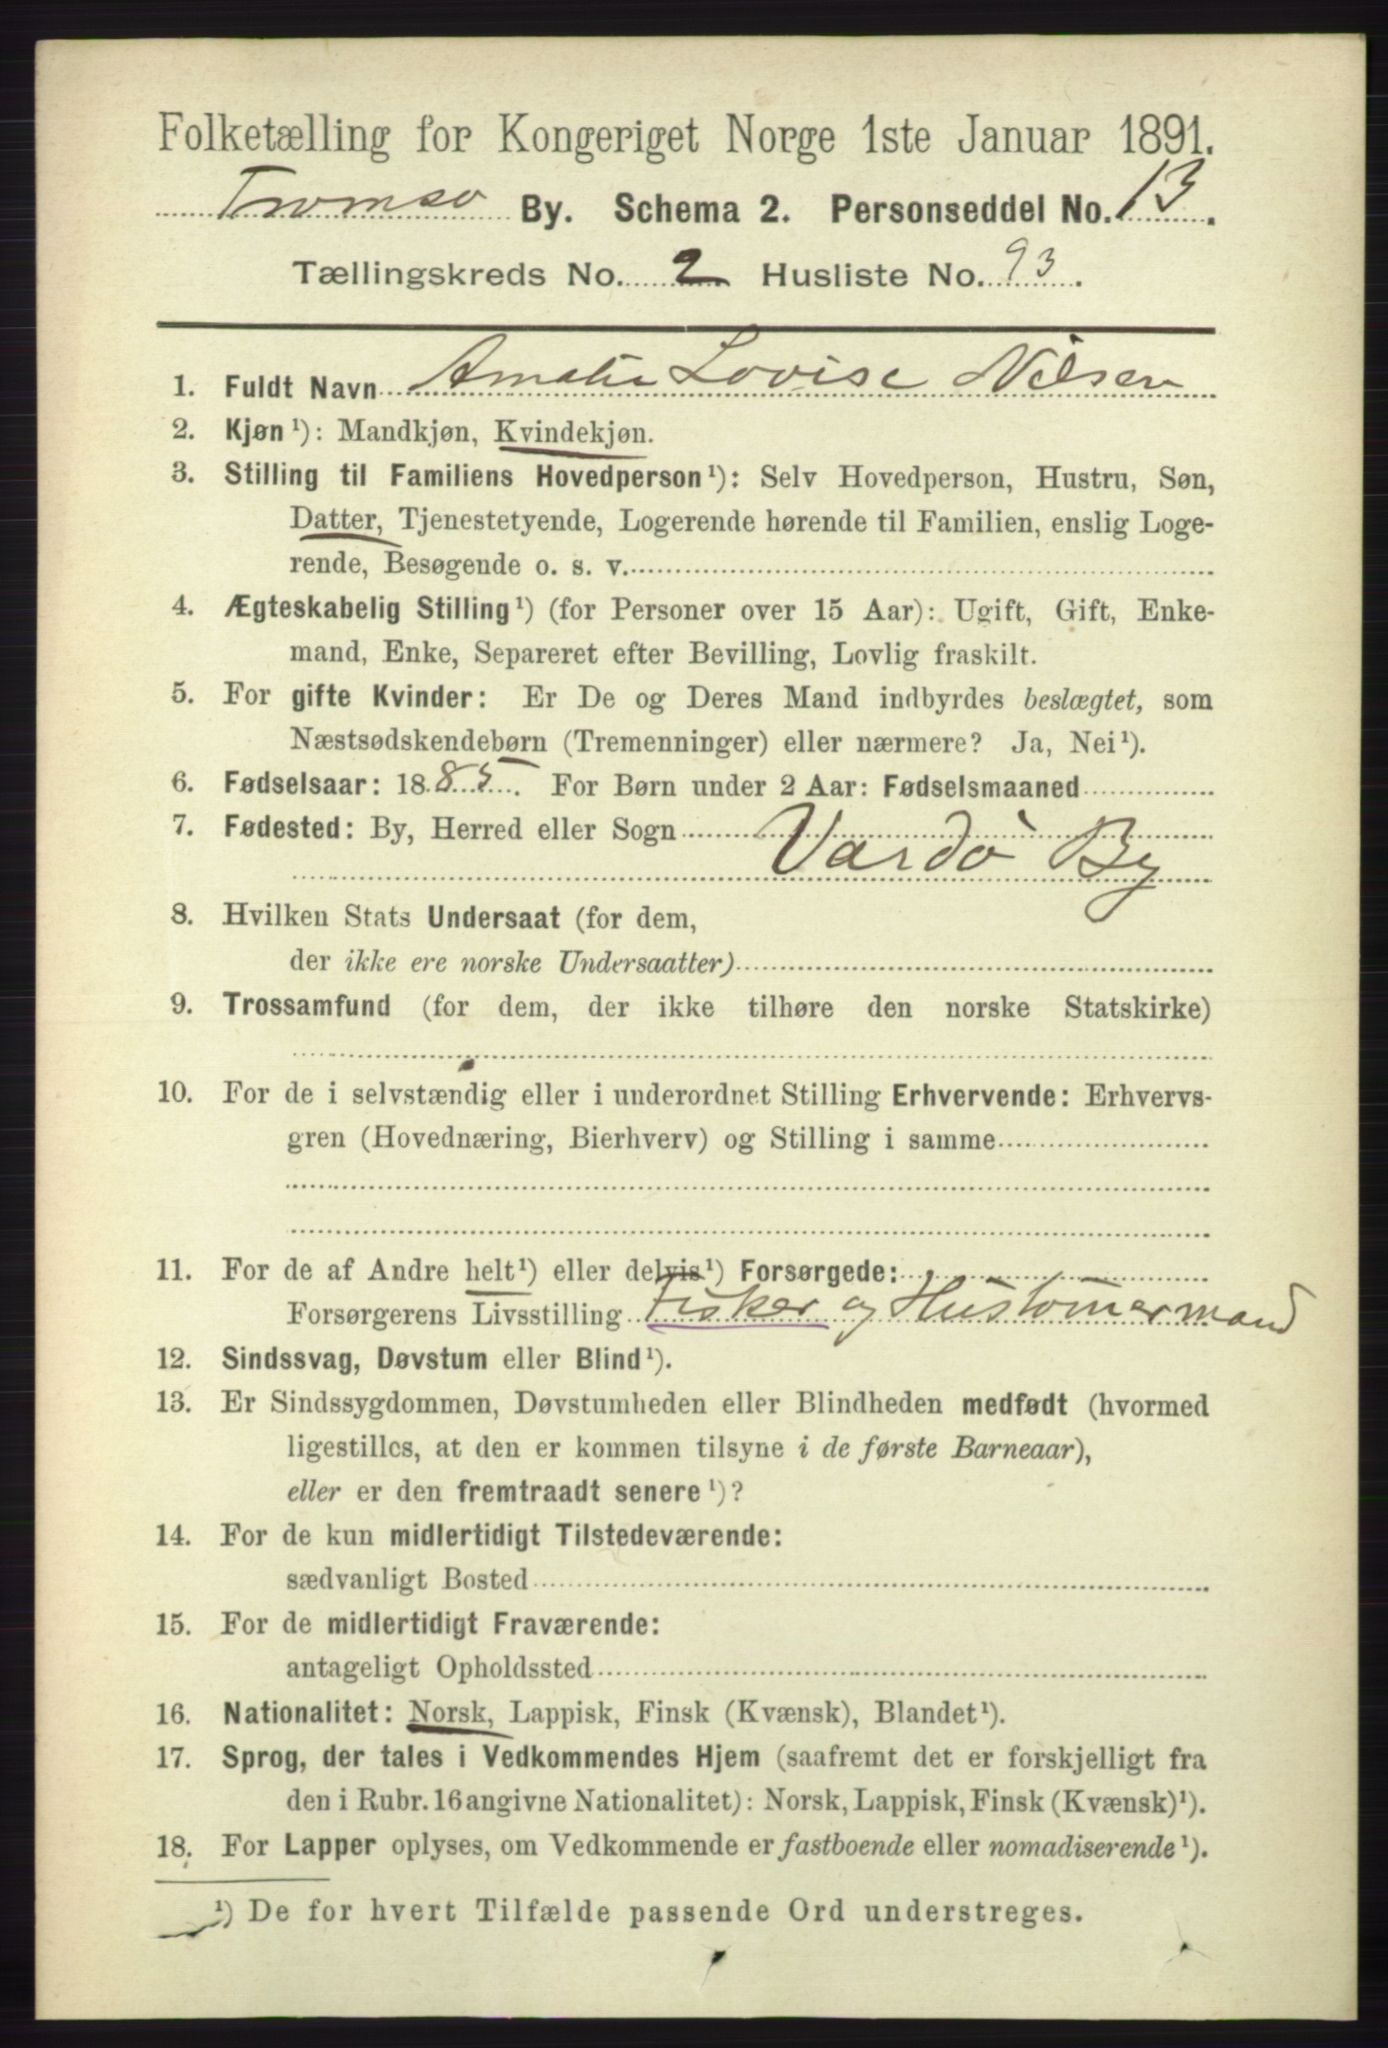 Folketælling for Kongeriget Norge 1ste Januar 1891.
Tromsø By. Schema 2. Personseddel No. 13.
Tællingskreds No. 2 Husliste No. 93.
1. Fuldt Navn Amalie Lovise Nilsen
2. Kjøn ¹): Mandkjøn, Kvindekjøn.
3. Stilling til Familiens Hovedperson ¹): Selv Hovedperson, Hustru, Søn,
Datter, Tjenestetyende, Logerende hørende til Familien, enslig Loge-
rende, Besøgende o. s. v.
4. Ægteskabelig Stilling ¹) (for Personer over 15 Aar): Ugift, Gift, Enke-
mand, Enke, Separeret efter Bevilling, Lovlig fraskilt.
5. For gifte Kvinder: Er De og Deres Mand indbyrdes beslægtet, som
Næstsødskendebørn (Tremenninger) eller nærmere? Ja, Nei ¹).
6. Fødselsaar: 1885. For Børn under 2 Aar: Fødselsmaaned
7. Fødested: By, Herred eller Sogn
Vardø By
8. Hvilken Stats Undersaat (for dem,
der ikke ere norske Undersaatter)
9. Trossamfund (for dem, der ikke tilhøre den norske Statskirke)
10. For de i selvstændig eller i underordnet Stilling Erhvervende: Erhvervs-
gren (Hovednæring, Bierhverv) og Stilling i samme
11. For de af Andre helt ¹) eller delvis ¹) Forsørgede:
Forsørgerens Livsstilling Fisker og Hustømermand
12. Sindssvag, Døvstum eller Blind ¹).
13. Er Sindssygdommen, Døvstumheden eller Blindheden medfødt (hvormed
ligestilles, at den er kommen tilsyne i de første Barneaar),
eller er den fremtraadt senere ¹)?
14. For de kun midlertidigt Tilstedeværende:
sædvanligt Bosted
15. For de midlertidigt Fraværende:
antageligt Opholdssted
16. Nationalitet: Norsk, Lappisk, Finsk (Kvænsk), Blandet ¹).
17. Sprog, der tales i Vedkommendes Hjem (saafremt det er forskjelligt fra
den i Rubr. 16 angivne Nationalitet): Norsk, Lappisk, Finsk (Kvænsk) ¹).
18. For Lapper oplyses, om Vedkommende er fastboende eller nomadiserende ¹).
¹) De for hvert Tilfælde passende Ord understreges.